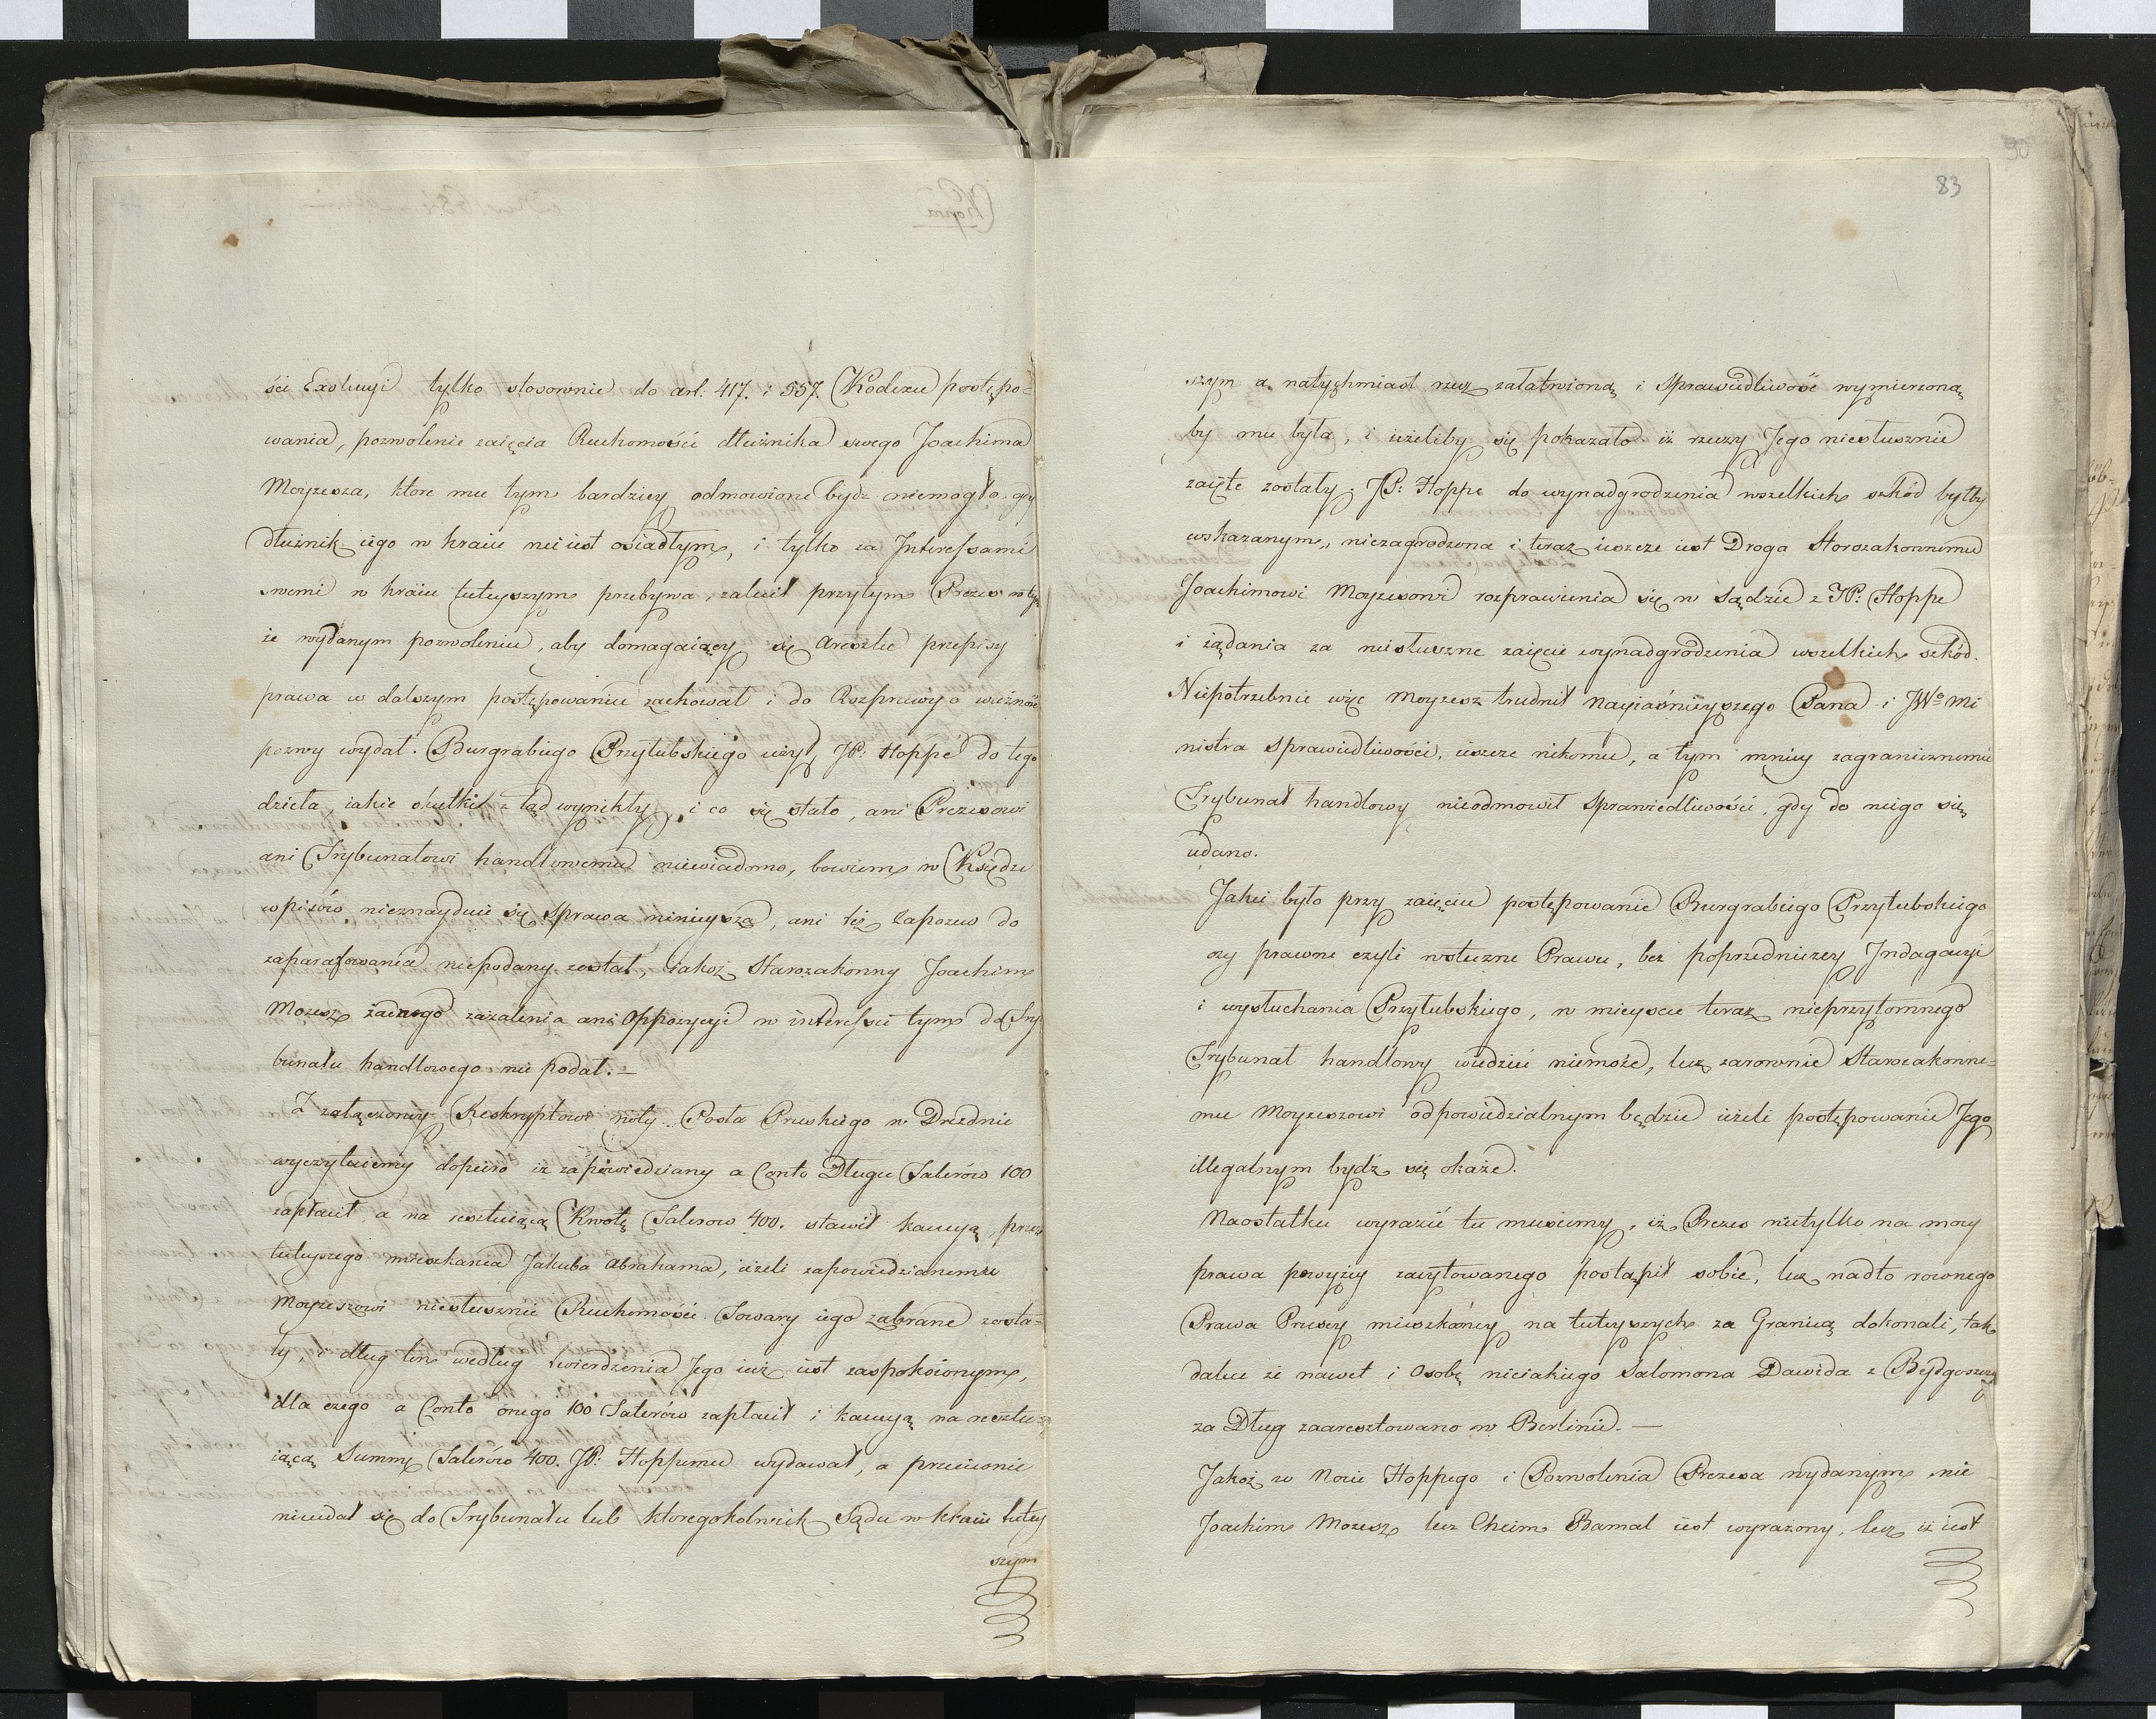 ści Exekucyi tylko stosownie do art: 417. i 557. Kodexu postępo-
wania, pozwolenie zaięcia Ruchomości dłużnika swego Joachima
Moyzesza, ktore mu tym bardziey odmowione bydz niemogło, gdy
dłużnik iego w kraiu nie iest osiadłym, i tylko za Interessami
swemi w kraiu tuteyszym przebywa, zalecił przytym Prezes w tym
że wydanym pozwoleniu, aby domagaiący się Aresztu przepisy
prawa w dalszym postępowaniu zachował i do Rozprawy o ważność
pozwy wydał. Burgrabiego Przyłubskiego użył JP: Hoppe do tego
dzieła, iakie skutki z tąd wynikły, i co się stało, ani Prezesowi
ani Trybunałowi handlowemu niewiadomo, bowiem w Księdze
wpisów nieznayduie się sprawa ninieysza, ani też zapozew do
zaparafowania niepodany został, iakoż Starozakonny Joachim
Mozesz żadnego zażalenia ani Oppozycyi w interessie tym do Try-
bunału handlowego nie podał. —
Z załączoney Reskryptowi noty Posła Pruskiego w Dreznie
wyczytuiemy dopiero iż zapowiedziany a Conto Długu Talerów 100
zapłacił a na resztuiącą Kwotę Talerow 400. stawił kaucyą, przez
tuteyszego mieszkańca Jakuba Abrahama, ieżeli zapowiedzianemu
Moyzeszowi niesłusznie Ruchomości Towary iego zabrane zosta-
ły, i dług ten według twierdzenia Jego iuż iest zaspokoionym,
dla czego a Conto onego 100 Talerów zapłacił i kaucyą na resztu-
iącą Summę Talerów 400. JP: Hoppemu wydawał, a przeciwnie
nieudał się do Trybunału lub ktoregokolwiek Sądu w kraiu tutey
szym
83
90
szym a natychmiast rzecz załatwioną i sprawiedliwość wymierzoną
by mu była, i ieżeliby się pokazało iż rzeczy Jego niesłusznie
zaięte zostały, JP: Hoppe do wynadgrodzenia wszelkich szkód byłby
wskazanym, niezagrodzona i teraz ieszcze iest Droga Starozakonnemu
Joachimowi Moyzesowi rozprawienia się w Sądzie z JP: Hoppe
i żądania za niesłuszne zaięcie wynadgrodzenia wszelkich szkód.
Niepotrzebnie więc Moyzesz trudnił Nayiaśnieyszego Pana i JWo Mi
nistra Sprawiedliwości, ieszcze nikomu, a tym mniey zagranicznemu
Trybunał handlowy nieodmowił Sprawiedliwości, gdy do niego się
udano.
Jakie było przy zaięciu postępowanie Burgrabiego Przyłubskiego
czy prawne czyli wsteczne Prawu, bez poprzedniczey Indagacyi
i wysłuchania Przyłubskiego, w mieyscu teraz nieprzytomnego
Trybunał handlowy wiedzieć niemoże, lecz zarownie Starozakonne-
mu Moyzeszowi odpowiedzialnym będzie ieżeli postępowanie Jego
illegalnym bydź się okaże.
Naostatku wyrazić tu musiemy, iż Prezes nietylko na mocy
prawa powyżey zacytowanego postąpił sobie, lecz nadto rownego
Prawa Pruscy mieszkańcy na tuteyszych za Granicą dokonali, tak
dalece że nawet i Osobę nieiakiego Salomona Dawida z Bydgoszczy
za Dług zaaresztowano w Berlinie. —
Jakoż w Nocie Hoppego i Pozwolenia Prezesa wydanym nie
Joachim Mozesz lecz Cheim Bamal iest wyrażony, lecz iż iest